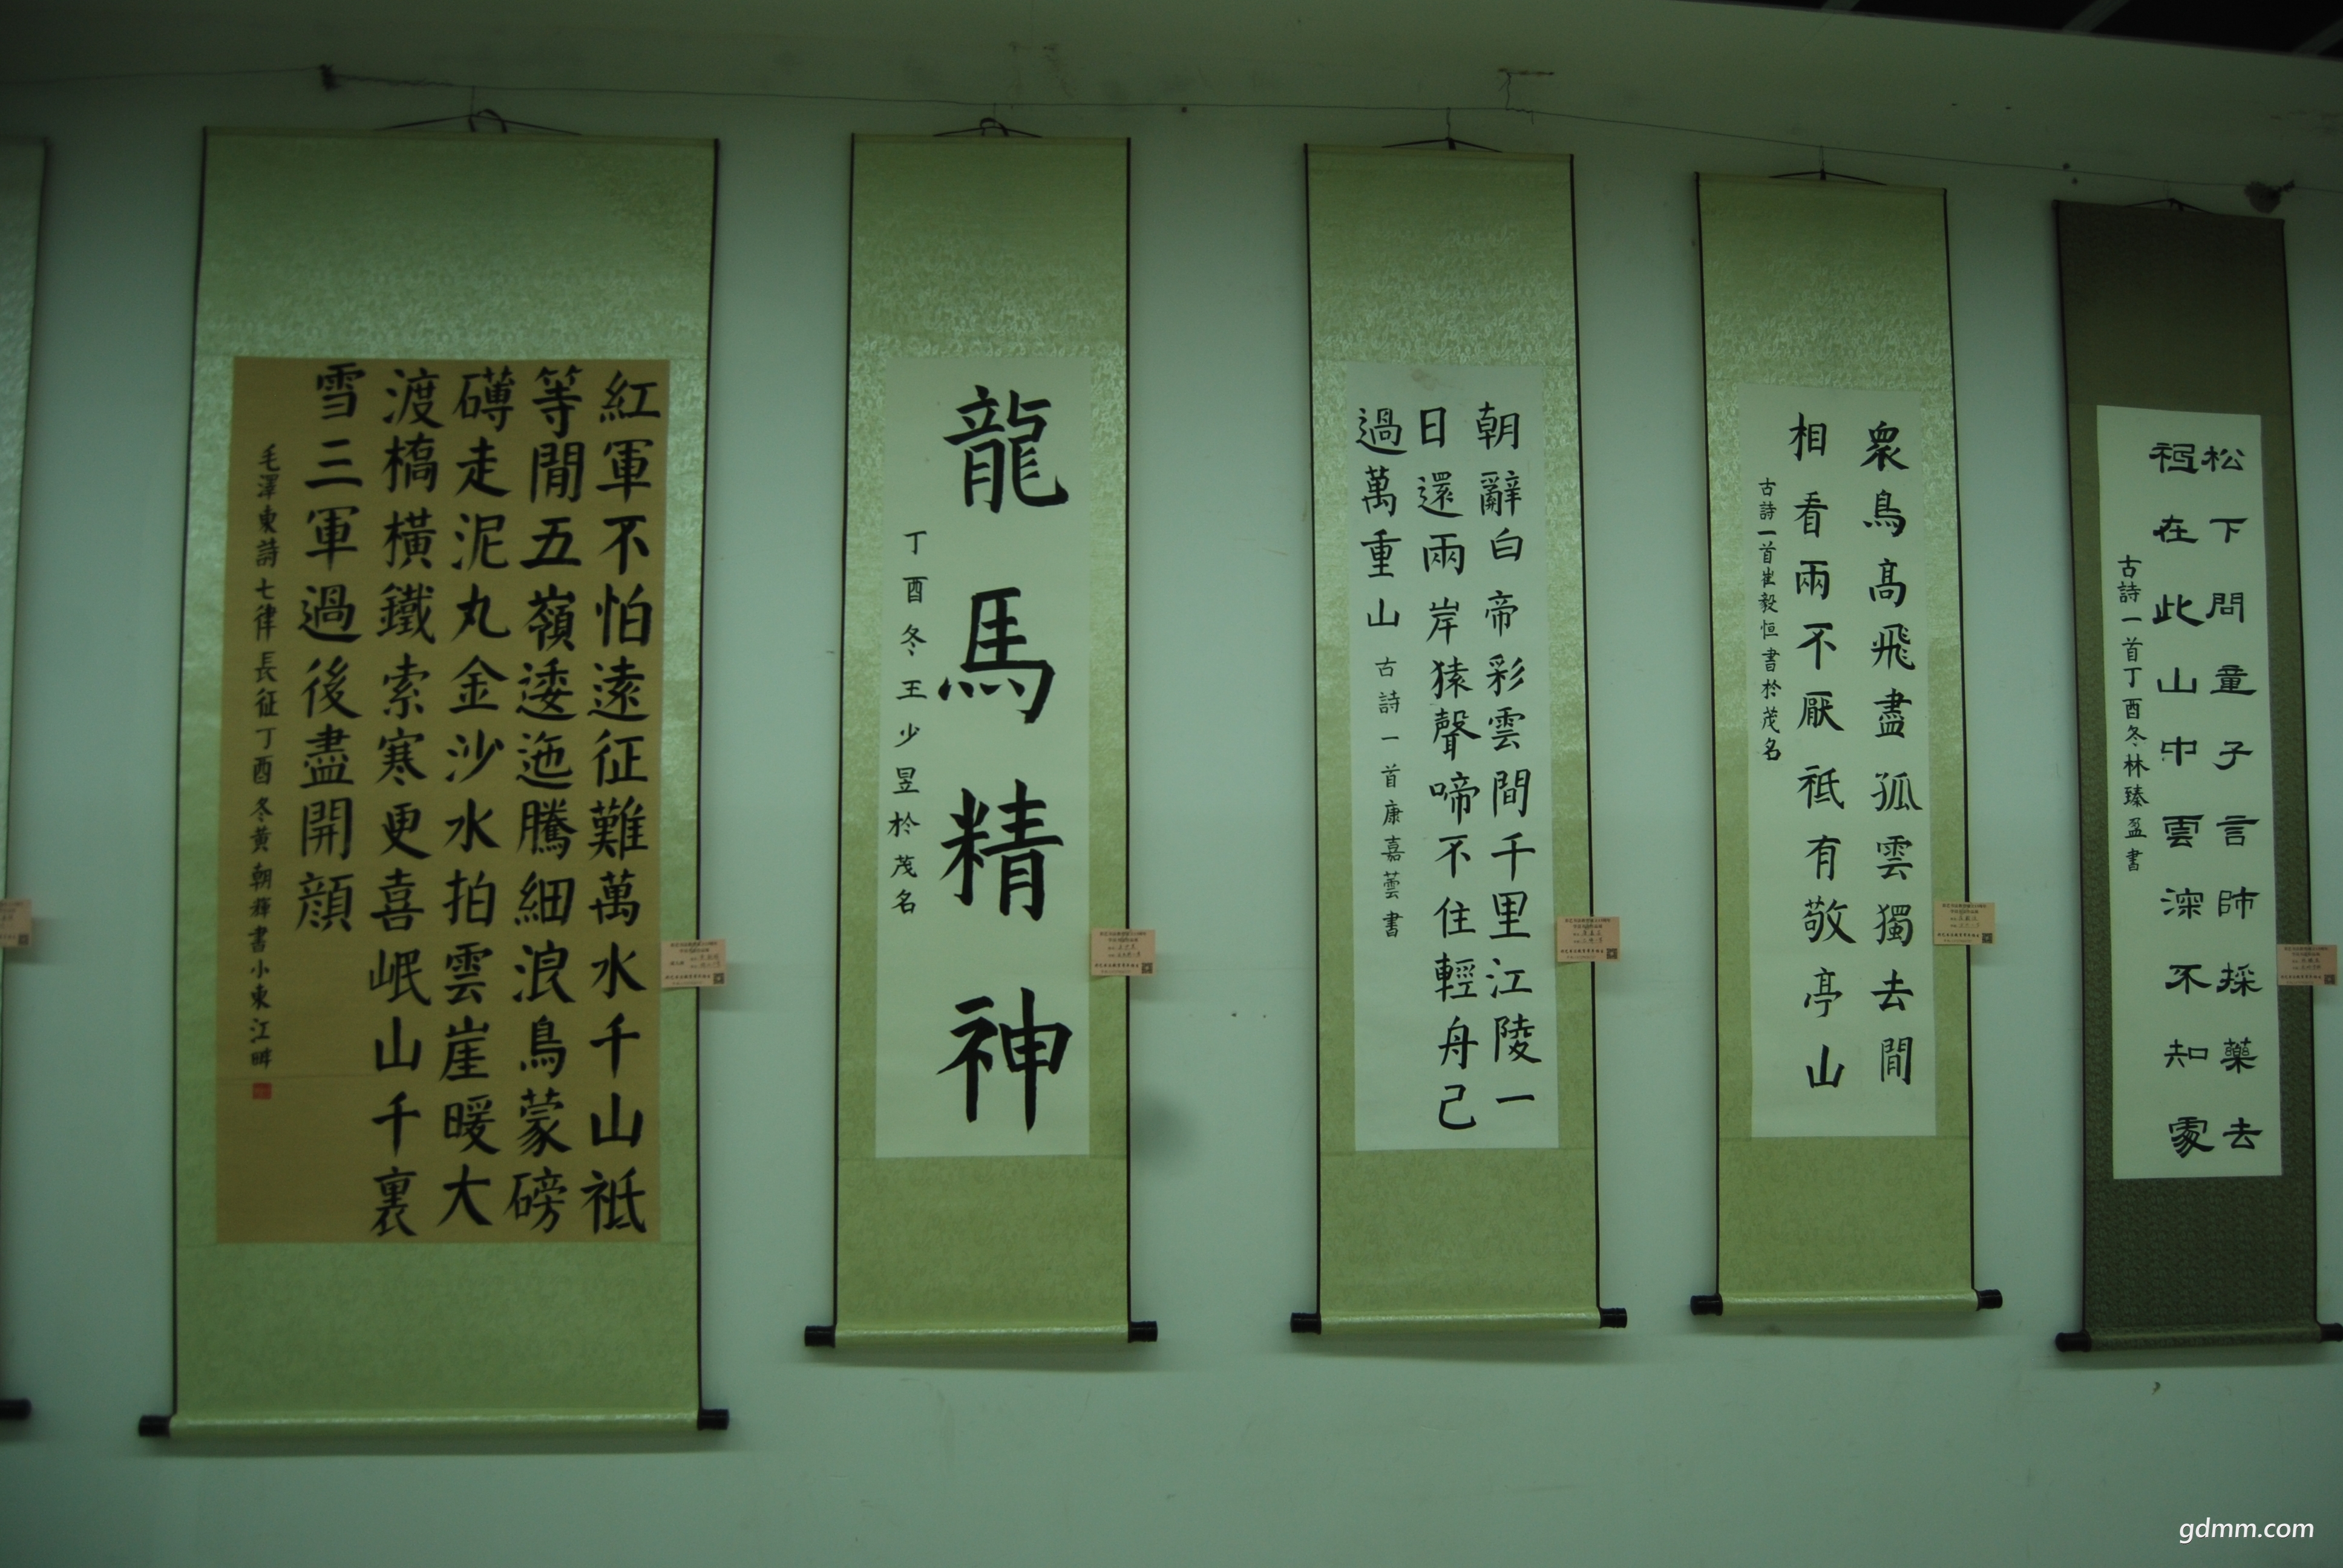 紅軍不怕遠征難萬水千山祗
等閒五嶺逶迤騰細浪鳥蒙磅
礡走泥丸金沙水拍雲崖暖大
渡橋橫鐵索寒更喜岷山千裏
雪三軍過後盡開顔
毛澤東詩七律長征丁酉冬黄朝輝書小東江畔
龍馬精神
丁酉冬王少昱於茂名
朝辭白帝彩雲間千里江陵一
日還兩岸猿聲啼不住輕舟己
過萬重山
古詩一首康嘉蕓書
衆鳥高飛盡孤雲獨去閒
相看兩不厭祗有敬亭山
古詩一首崔毅恒書於茂名
松下問童子言師採藥去
祗在此山中雲深不知處
古詩一首丁酉冬林臻盈書
gdmm.com